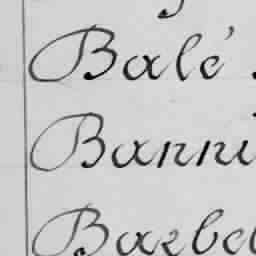 Balé
Banni
Barbe